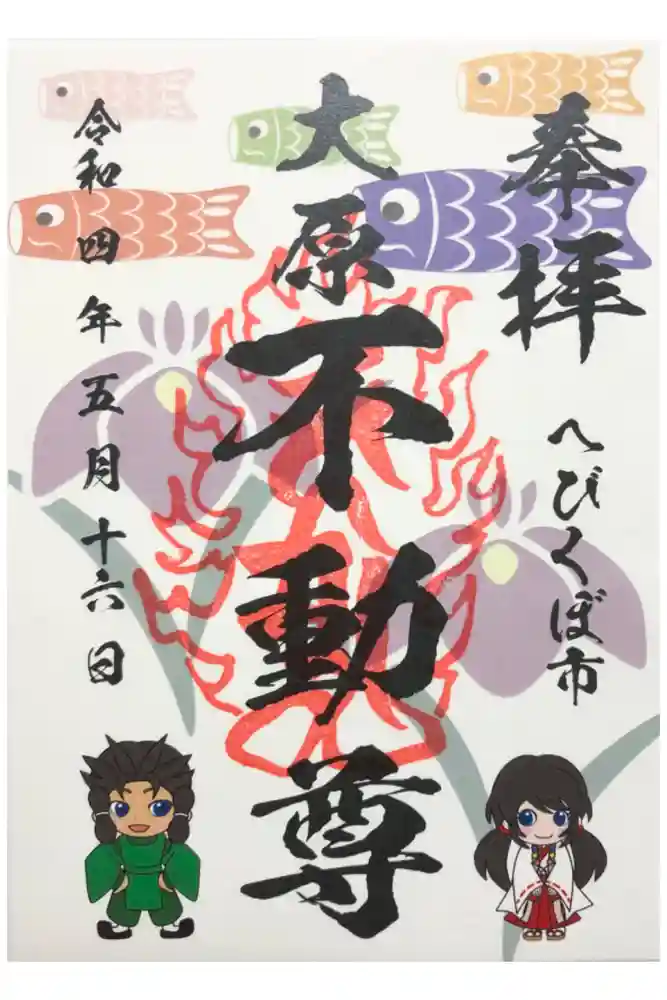 奉拝
へびくぼ市
大原不動尊
令和四年五月十六日